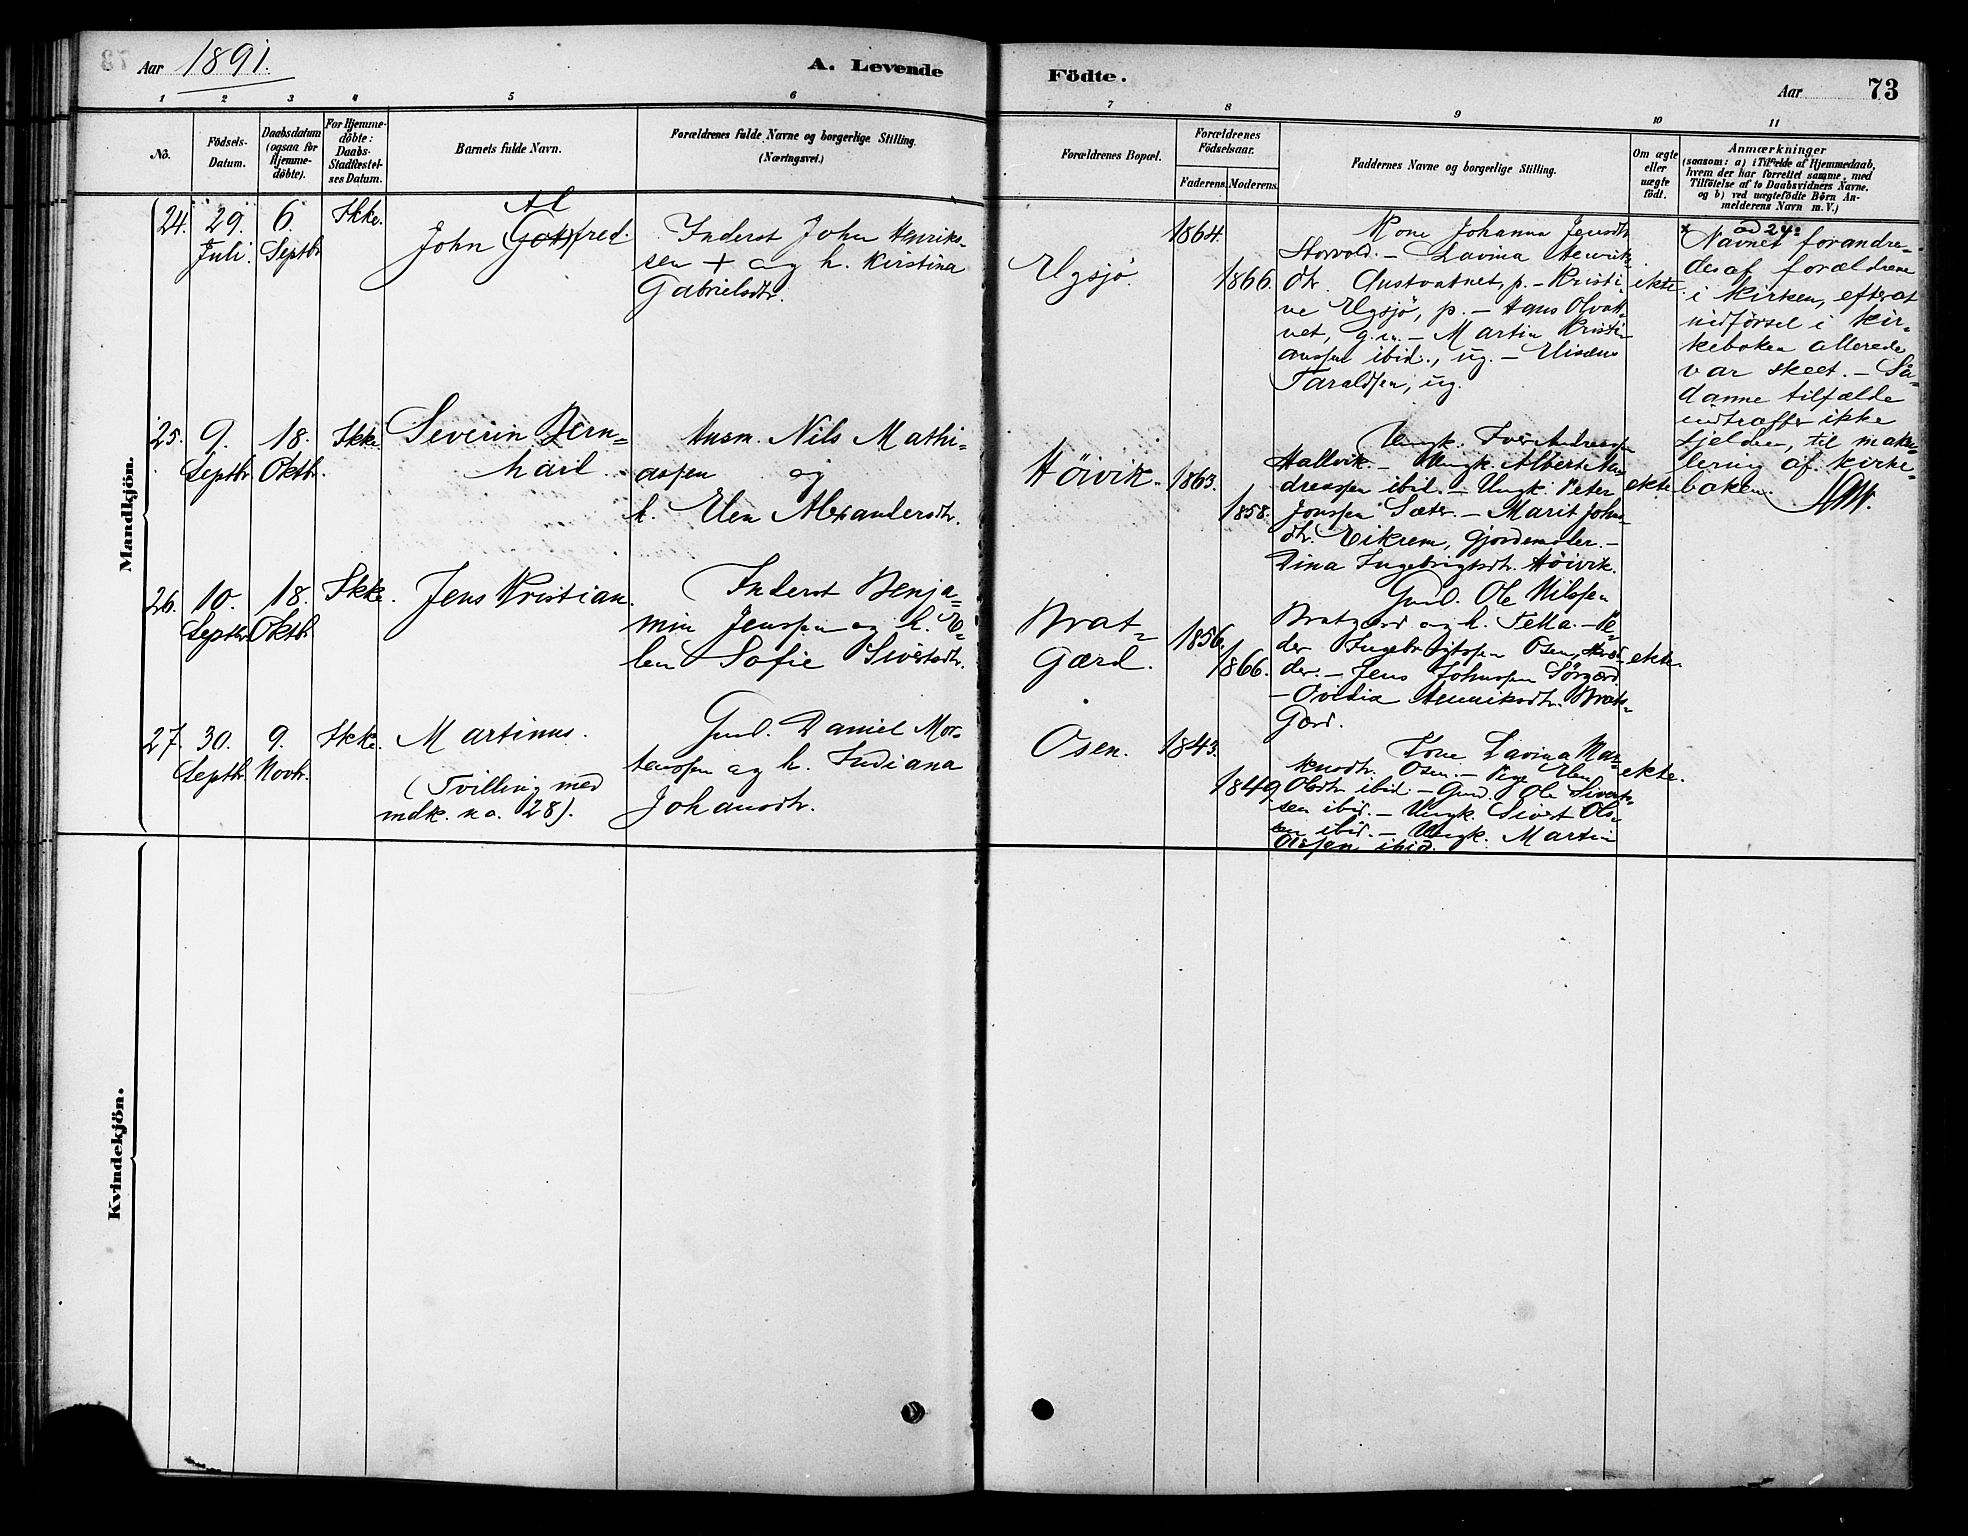 Aar 1891.
A. Levende
Födte.
Aar
73
1 2 3 4 5 6 7 8 9 10 11
No.
Födsels-
Datum.
Daabsdatum
(ogsaa for
Hjemme-
døbte).
For Hjemme-
döbte:
Daabs-
Stadfæstel-
ses Datum.
Barnets fulde Navn.
Forældrenes fulde Navne og borgerlige Stilling.
(Næringsvei.)
Forældrenes Bopæl.
Forældrenes
Födselsaar.
Faderens. Moderens.
Faddernes Navne og borgerlige Stilling.
Om ægte
eller
uægte
födt.
Anmærkninger
(saasom: a) i Tilfælde af Hjemmedaab,
hvem der har forrettet samme, med
Tilföielse af to Daabsvidners Navne.
og b) ved uægtefödte Börn An-
melderens Navn m. V.)
Mandkjön.
24.
29.
Juli.
6.
Septbr.
Ikke.
Al
John Gottfred.
Inderst John Henriks-
sen + og h. Kirstina
Gabrielsdtr.
Elgsjö.
1864.
1866.
Kone Johanna Jensdtr
Storvold. – Lavina Henriks-
dtr. Austvatnet, p. – Kristi-
ne Elgsjö, p. – Hans Olvat-
net, g.m. – Martin Kristi-
anssen ibid., ug. – Eliseus
Taraldsen, ug.
ekte.
ad 24:
x Navnet forandre-
des af forældrene
i kirken, efterat
indförsel i kir-
keboken allerede
var skeet. – Så-
danne tilfælde
indtræffer ikke
sjelden, til make-
lering af kirke-
boken.
25.
9.
Septbr.
18.
Oktbr.
Ikke.
Severin Bern-
hard
Husm. Nils Mathi-
assen og
h. Elen Alexandersdtr.
Höivik.
1863.
1858.
Ungk. Iver Andreassen
Hallvik. – Ungk. Albert An-
dreassen ibid. – Ungk. Peter
Jonssen Sæter. – Marit Johns-
dtr. Eikrem, Gjordemoder. –
Dina Ingebrigtsdtr. Höivik.
ekte
26.
10.
Septbr
18.
Oktbr
Ikke.
Jens Kristian.
Inderst Benja-
min Jenssen og h. E-
len Sofie Sivertsdtr.
Brat-
Gærd.
1856.
1866.
Gmd. Ole Nilssen
Bratgærd og h. Tella. – Pe-
der Ingebrigtssen Osen,
– Jens Johnssen Sörgærd
– Ovidia Henriksdtr. Brat-
Gærd.
ekte.
27.
30.
Septbr.
9.
Novbr.
Ikke.
Martinus.
(Tvilling med
mdk. no. 28).
Gmd. Daniel Mor-
tenssen og h. Indiana
Johansdtr.
Osen.
1843.
1849
Kone Lavina Mar-
kusdtr. Osen. – Pige Elen
Olsdtr ibid – Gmd. Ole Sivert-
sen ibid. – Ungk. Sivert Ols-
sen ibid. – Ungk. Martin
Olssen ibid.
ekte.
Kvindekjön.